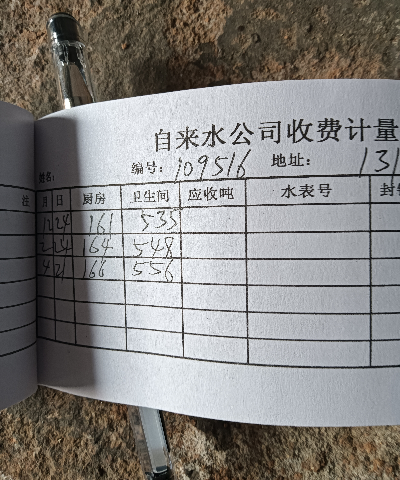 自来水公司收费计量
姓名:
编号: 109516 地址: 131
注 月 日 厨房 卫生间 应收吨 水表号 封
12 24 161 535
2 24 164 548
4 21 166 556